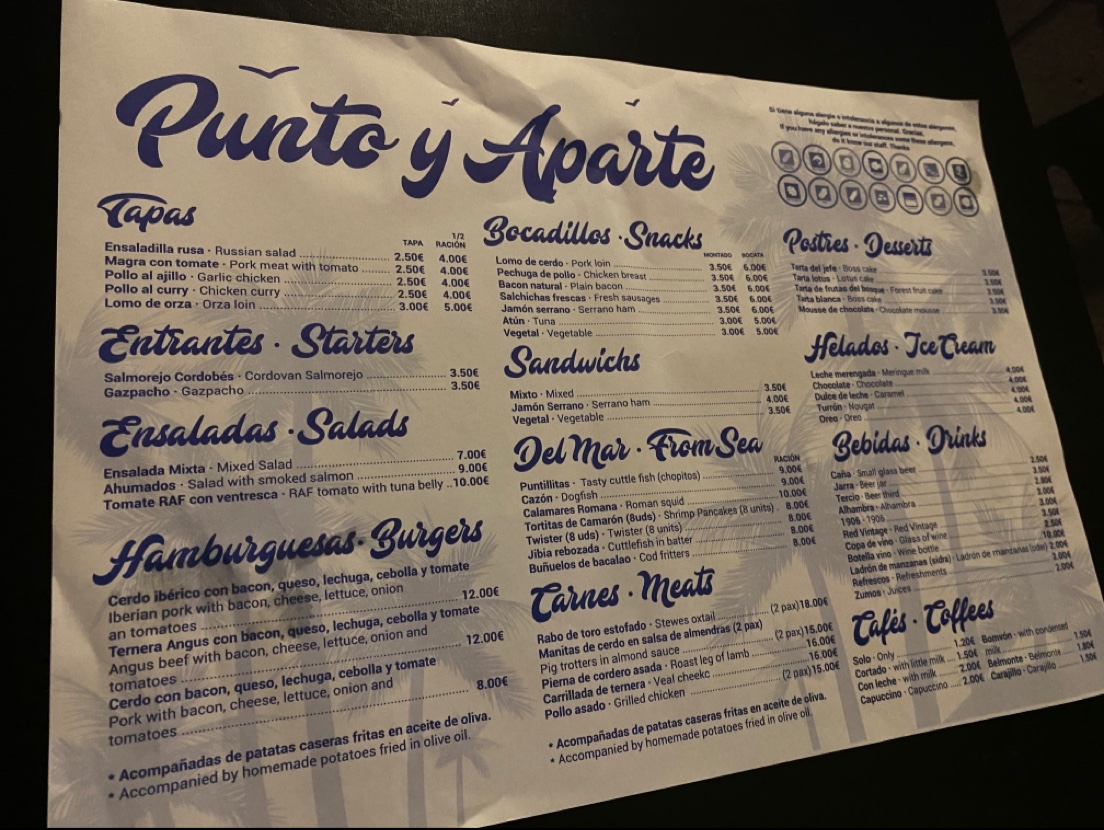 Punto y Aparte
Si tiene alguna alergia o intolerancia a algunos de estos alérgenos,
hágalo saber a nuestro personal. Gracias.
If you have any allergies or intolerances some these allergens,
do it know our staff. Thanks
Tapas
TAPA 1/2 RACIÓN
Ensaladilla rusa · Russian salad 2.50€ 4.00€
Magra con tomate · Pork meat with tomato 2.50€ 4.00€
Pollo al ajillo · Garlic chicken 2.50€ 4.00€
Pollo al curry · Chicken curry 2.50€ 4.00€
Lomo de orza · Orza loin 3.00€ 5.00€
Entrantes · Starters
Salmorejo Cordobés · Cordovan Salmorejo 3.50€
Gazpacho · Gazpacho 3.50€
Ensaladas · Salads
Ensalada Mixta · Mixed Salad 7.00€
Ahumados · Salad with smoked salmon 9.00€
Tomate RAF con ventresca · RAF tomato with tuna belly 10.00€
Hamburguesas · Burgers
Cerdo ibérico con bacon, queso, lechuga, cebolla y tomate
Iberian pork with bacon, cheese, lettuce, onion
an tomatoes 12.00€
Ternera Angus con bacon, queso, lechuga, cebolla y tomate
Angus beef with bacon, cheese, lettuce, onion and
tomatoes 12.00€
Cerdo con bacon, queso, lechuga, cebolla y tomate
Pork with bacon, cheese, lettuce, onion and
tomatoes 8.00€
* Acompañadas de patatas caseras fritas en aceite de oliva.
* Accompanied by homemade potatoes fried in olive oil.
Bocadillos · Snacks
MONTADO BOCATA
Lomo de cerdo · Pork loin 3.50€ 6.00€
Pechuga de pollo · Chicken breast 3.50€ 6.00€
Bacon natural · Plain bacon 3.50€ 6.00€
Salchichas frescas · Fresh sausages 3.50€ 6.00€
Jamón serrano · Serrano ham 3.50€ 6.00€
Atún · Tuna 3.00€ 5.00€
Vegetal · Vegetable 3.00€ 5.00€
Sandwichs
Mixto · Mixed 3.50€
Jamón Serrano · Serrano ham 4.00€
Vegetal · Vegetable 3.50€
Del Mar · From Sea
RACIÓN
Puntillitas · Tasty cuttle fish (chopitos) 9.00€
Cazón · Dogfish 9.00€
Calamares Romana · Roman squid 10.00€
Tortitas de Camarón (8uds) · Shrimp Pancakes (8 units) 8.00€
Twister (8 uds) · Twister (8 units) 8.00€
Jibia rebozada · Cuttlefish in batter 8.00€
Buñuelos de bacalao · Cod fritters 8.00€
Carnes · Meats
Rabo de toro estofado · Stewes oxtail (2 pax)18.00€
Manitas de cerdo en salsa de almendras (2 pax)
Pig trotters in almond sauce (2 pax)15.00€
Pierna de cordero asada · Roast leg of lamb 16.00€
Carrillada de ternera · Veal cheekc 16.00€
Pollo asado · Grilled chicken (2 pax)15.00€
* Acompañadas de patatas caseras fritas en aceite de oliva.
* Accompanied by homemade potatoes fried in olive oil.
Postres · Desserts
Tarta del jefe · Boss cake 3.50€
Tarta lotus · Lotus cake 3.50€
Tarta de frutas del bosque · Forest fruit cake 3.50€
Tarta blanca · Boss cake 3.50€
Mousse de chocolate · Chocolate mousse 3.50€
Helados · Ice Cream
Leche merengada · Meringue milk 4.00€
Chocolate · Chocolate 4.00€
Dulce de leche · Caramel 4.00€
Turrón · Nougat 4.00€
Oreo · Oreo 4.00€
Bebidas · Drinks
Caña · Small glass beer 2.50€
Jarra · Beer jar 3.50€
Tercio · Beer third
Alhambra · Alhambra 3.00€
1906 · 1906 3.00€
Red Vintage · Red Vintage 3.50€
Copa de vino · Glass of wine 2.50€
Botella vino · Wine bottle
Ladrón de manzanas (sidra) · Ladrón de manzanas (cider) 2.00€
Refrescos · Refreshments 2.00€
Zumos · Juices 2.00€
Cafés · Coffees
Solo · Only 1.20€
Cortado · with little milk 1.50€
Con leche · with milk 2.00€
Capuccino · Capuccino 2.00€
Bomvón · with condensed
milk 1.50€
Belmonte · Belmonte 1.80€
Carajillo · Carajillo 1.50€